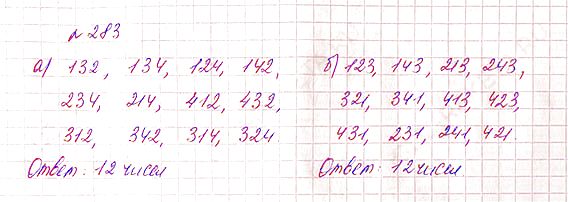 № 283
а) 132, 134, 124, 142,
234, 214, 412, 432,
312, 342, 314, 324
Ответ: 12 чисел
б) 123, 143, 213, 243,
321, 341, 413, 423,
431, 231, 241, 421.
Ответ: 12 чисел